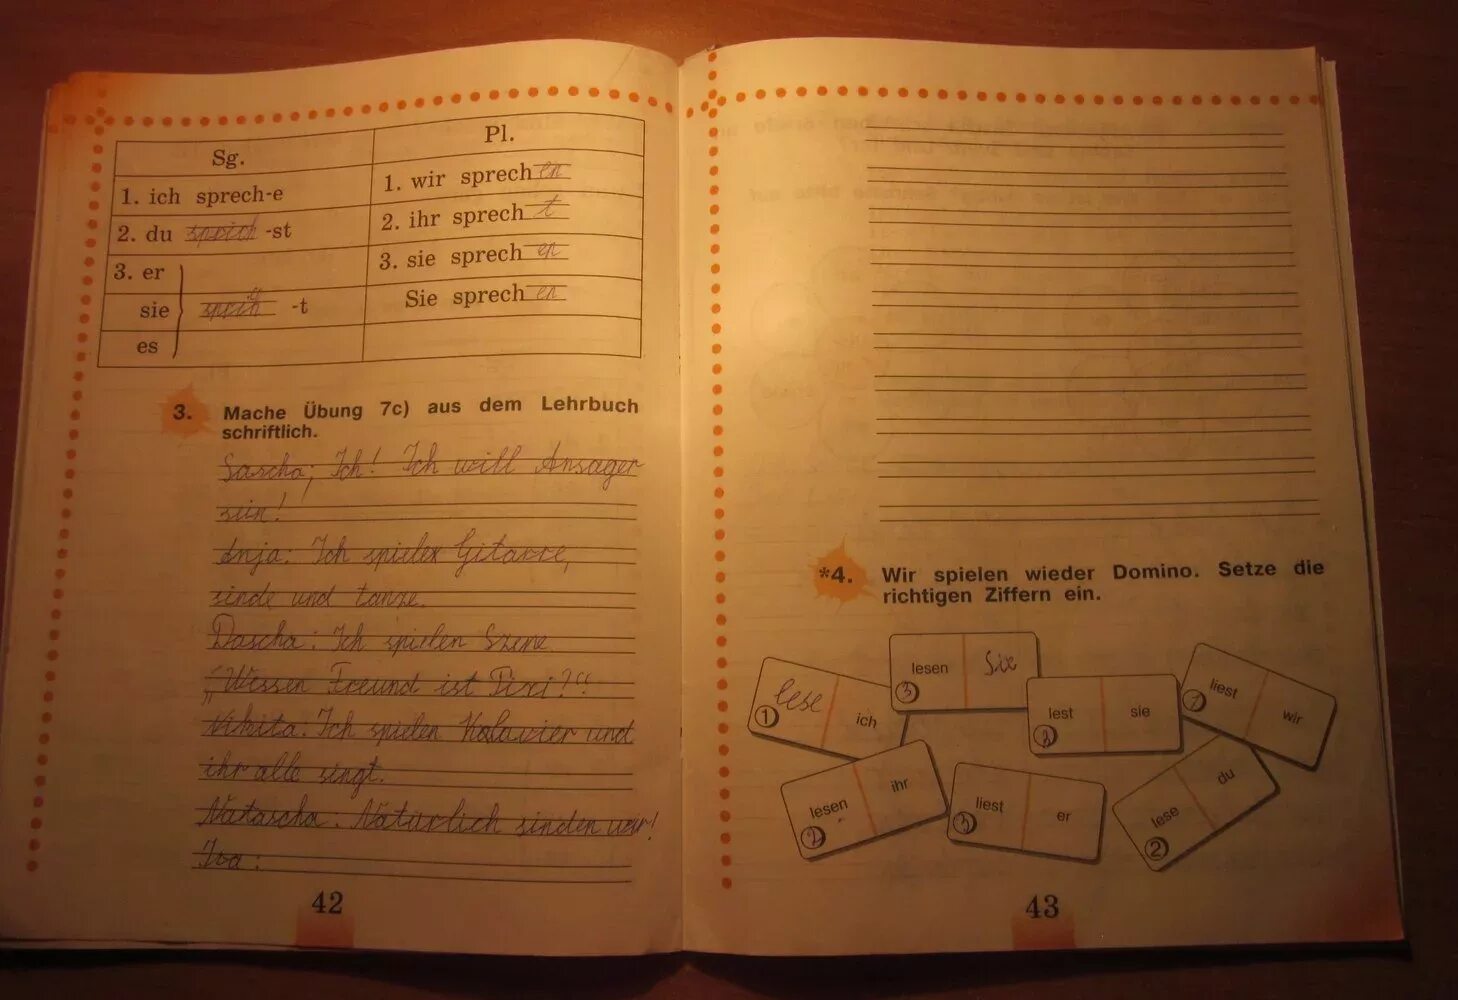 Sg.
Pl.
1. ich sprech-e
1. wir sprech en
2. du sprich -st
2. ihr sprech t
3. er
3. sie sprech en
sie sprich -t
Sie sprech en
es
3. Mache Übung 7c) aus dem Lehrbuch
schriftlich.
Sascha: Ich! Ich will Ansager
sein!
Anja: Ich spielen Gitarre,
sinde und tanze.
Dascha: Ich spielen Szene
„Wessen Freund ist Pixi?“
Nikita: Ich spielen Kalavier und
ihr alle singt.
Natascha: Natürlich sinden wir!
Ira:
42
*4. Wir spielen wieder Domino. Setze die
richtigen Ziffern ein.
lesen Sie
3
lese ich
1
lest sie
2
liest wir
1
lesen ihr
2
liest er
3
lese du
2
43